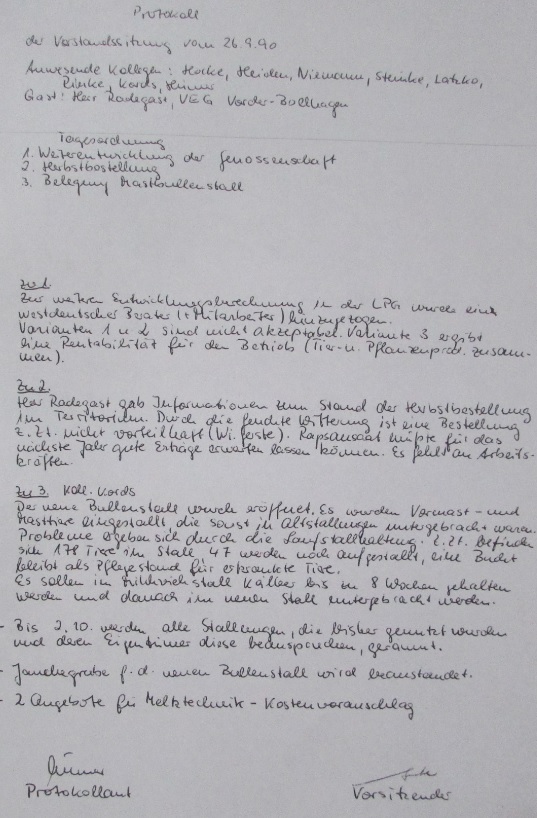 Protokoll
der Vorstandssitzung vom 26.9.90
Anwesende Kollegen: Horke, Heiden, Niemann, Steinke, Latzko,
Rinke, Kords,
Gast: Herr Radegast, VEG Vorder-Bollhagen
Tagesordnung
1. Weiterentwicklung der Genossenschaft
2. Herbstbestellung
3. Belegung Mastbullenstall
zu 1.
Zur weiteren Entwicklungsberechnung in der LPG wurde ein
westdeutscher Berater (+ Mitarbeiter) hinzugezogen.
Varianten 1 u 2 sind nicht akzeptabel. Variante 3 ergibt
eine Rentabilität für den Betrieb (Tier- u. Pflanzenprod. zusam-
men).
zu 2.
Herr Radegast gab Informationen zum Stand der Herbstbestellung
im Territorium. Durch die feuchte Witterung ist eine Bestellung
z. Zt. nicht vorteilhaft (Wi. gerste). Rapsansaat müßte für das
nächste Jahr gute Erträge erwarten lassen können. Es fehlt an Arbeits-
kräften.
zu 3. Koll. Kords
Der neue Bullenstall wurde eröffnet. Es wurden Vormast- und
Masttiere eingestallt, die sonst in Altstallungen untergebracht waren.
Probleme ergeben sich durch die Laufstallhaltung. Z. Zt. befinden
sich 178 Tiere im Stall, 47 werden noch aufgestallt, eine Bucht
bleibt als Pflegestand für erkrankte Tiere.
Es sollen im Milchviehstall Kälber bis zu 8 Wochen gehalten
werden und danach im neuen Stall untergebracht werden.
- Bis 2.10. werden alle Stallungen, die bisher genutzt wurden
und deren Eigentümer diese beanspruchen, geräumt.
- Jauchegrube f. d. neuen Bullenstall wird beanstandet.
- 2 Angebote für Melktechnik - Kostenvoranschlag
Protokollant
Vorsitzender